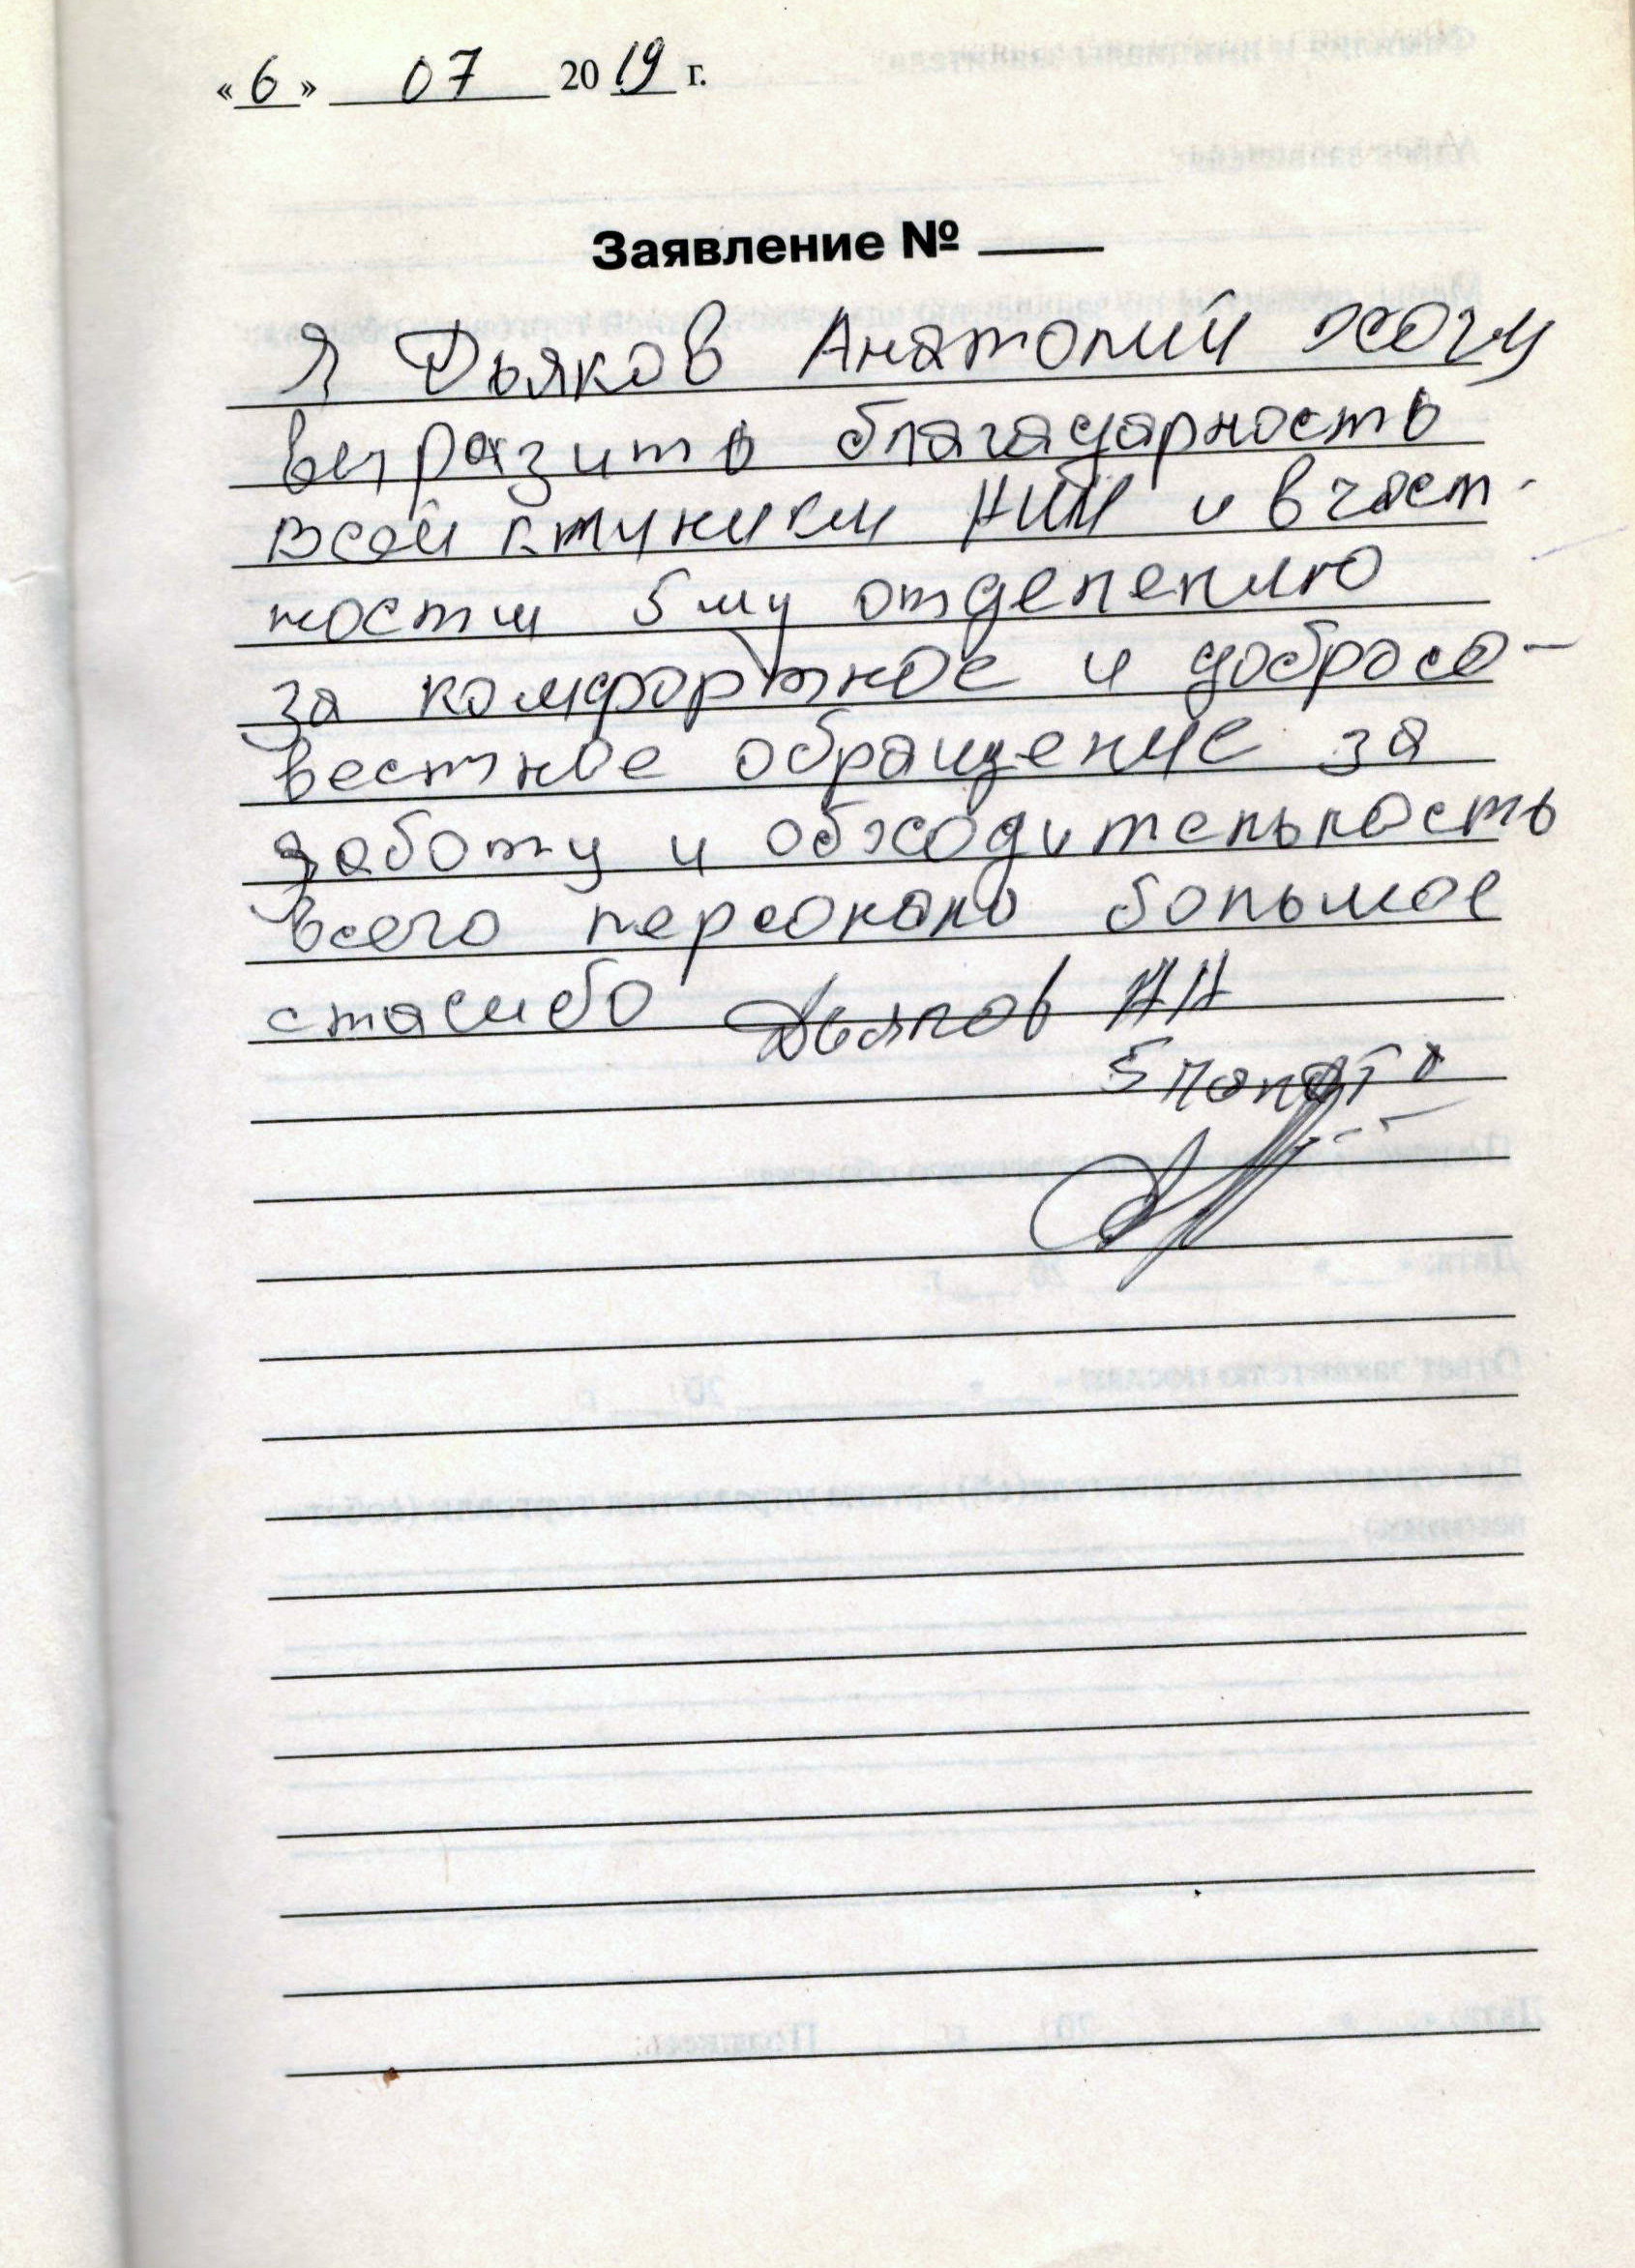 «6» 07 2019 г.
Заявление № ____
Я Дьяков Анатолий хочу
выразить благадарность
всей клиники НИИ и в част-
ности 5му отделению
за комфортное и добросо-
вестное обращение за
заботу и обходительность
всего персонала большое
спасибо Дьяков АН
5 палата